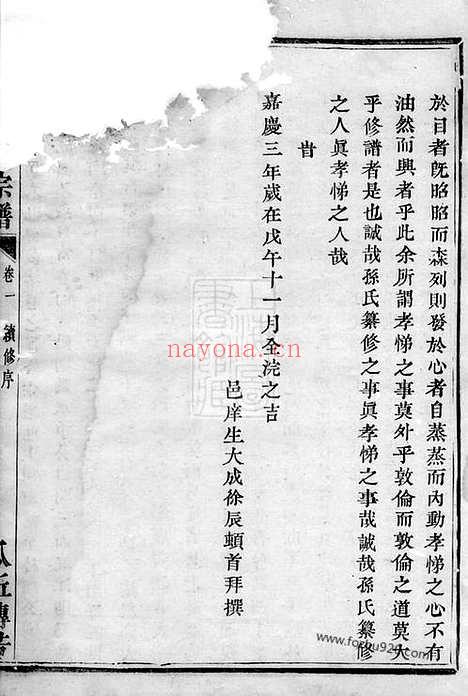 於目者旣昭昭而森列則發於心者自蒸蒸而內動孝悌之心不有
油然而興者乎此余所謂孝悌之事莫外乎敦倫而敦倫之道莫大
乎修譜者是也誠哉孫氏纂修之事眞孝悌之事哉誠哉孫氏纂修
之人眞孝悌之人哉
旹
嘉慶三年歲在戊午十一月全浣之吉
邑庠生大成徐辰頓首拜撰
宗譜
卷一
續修序
nayona.cn
www.foshu920.com